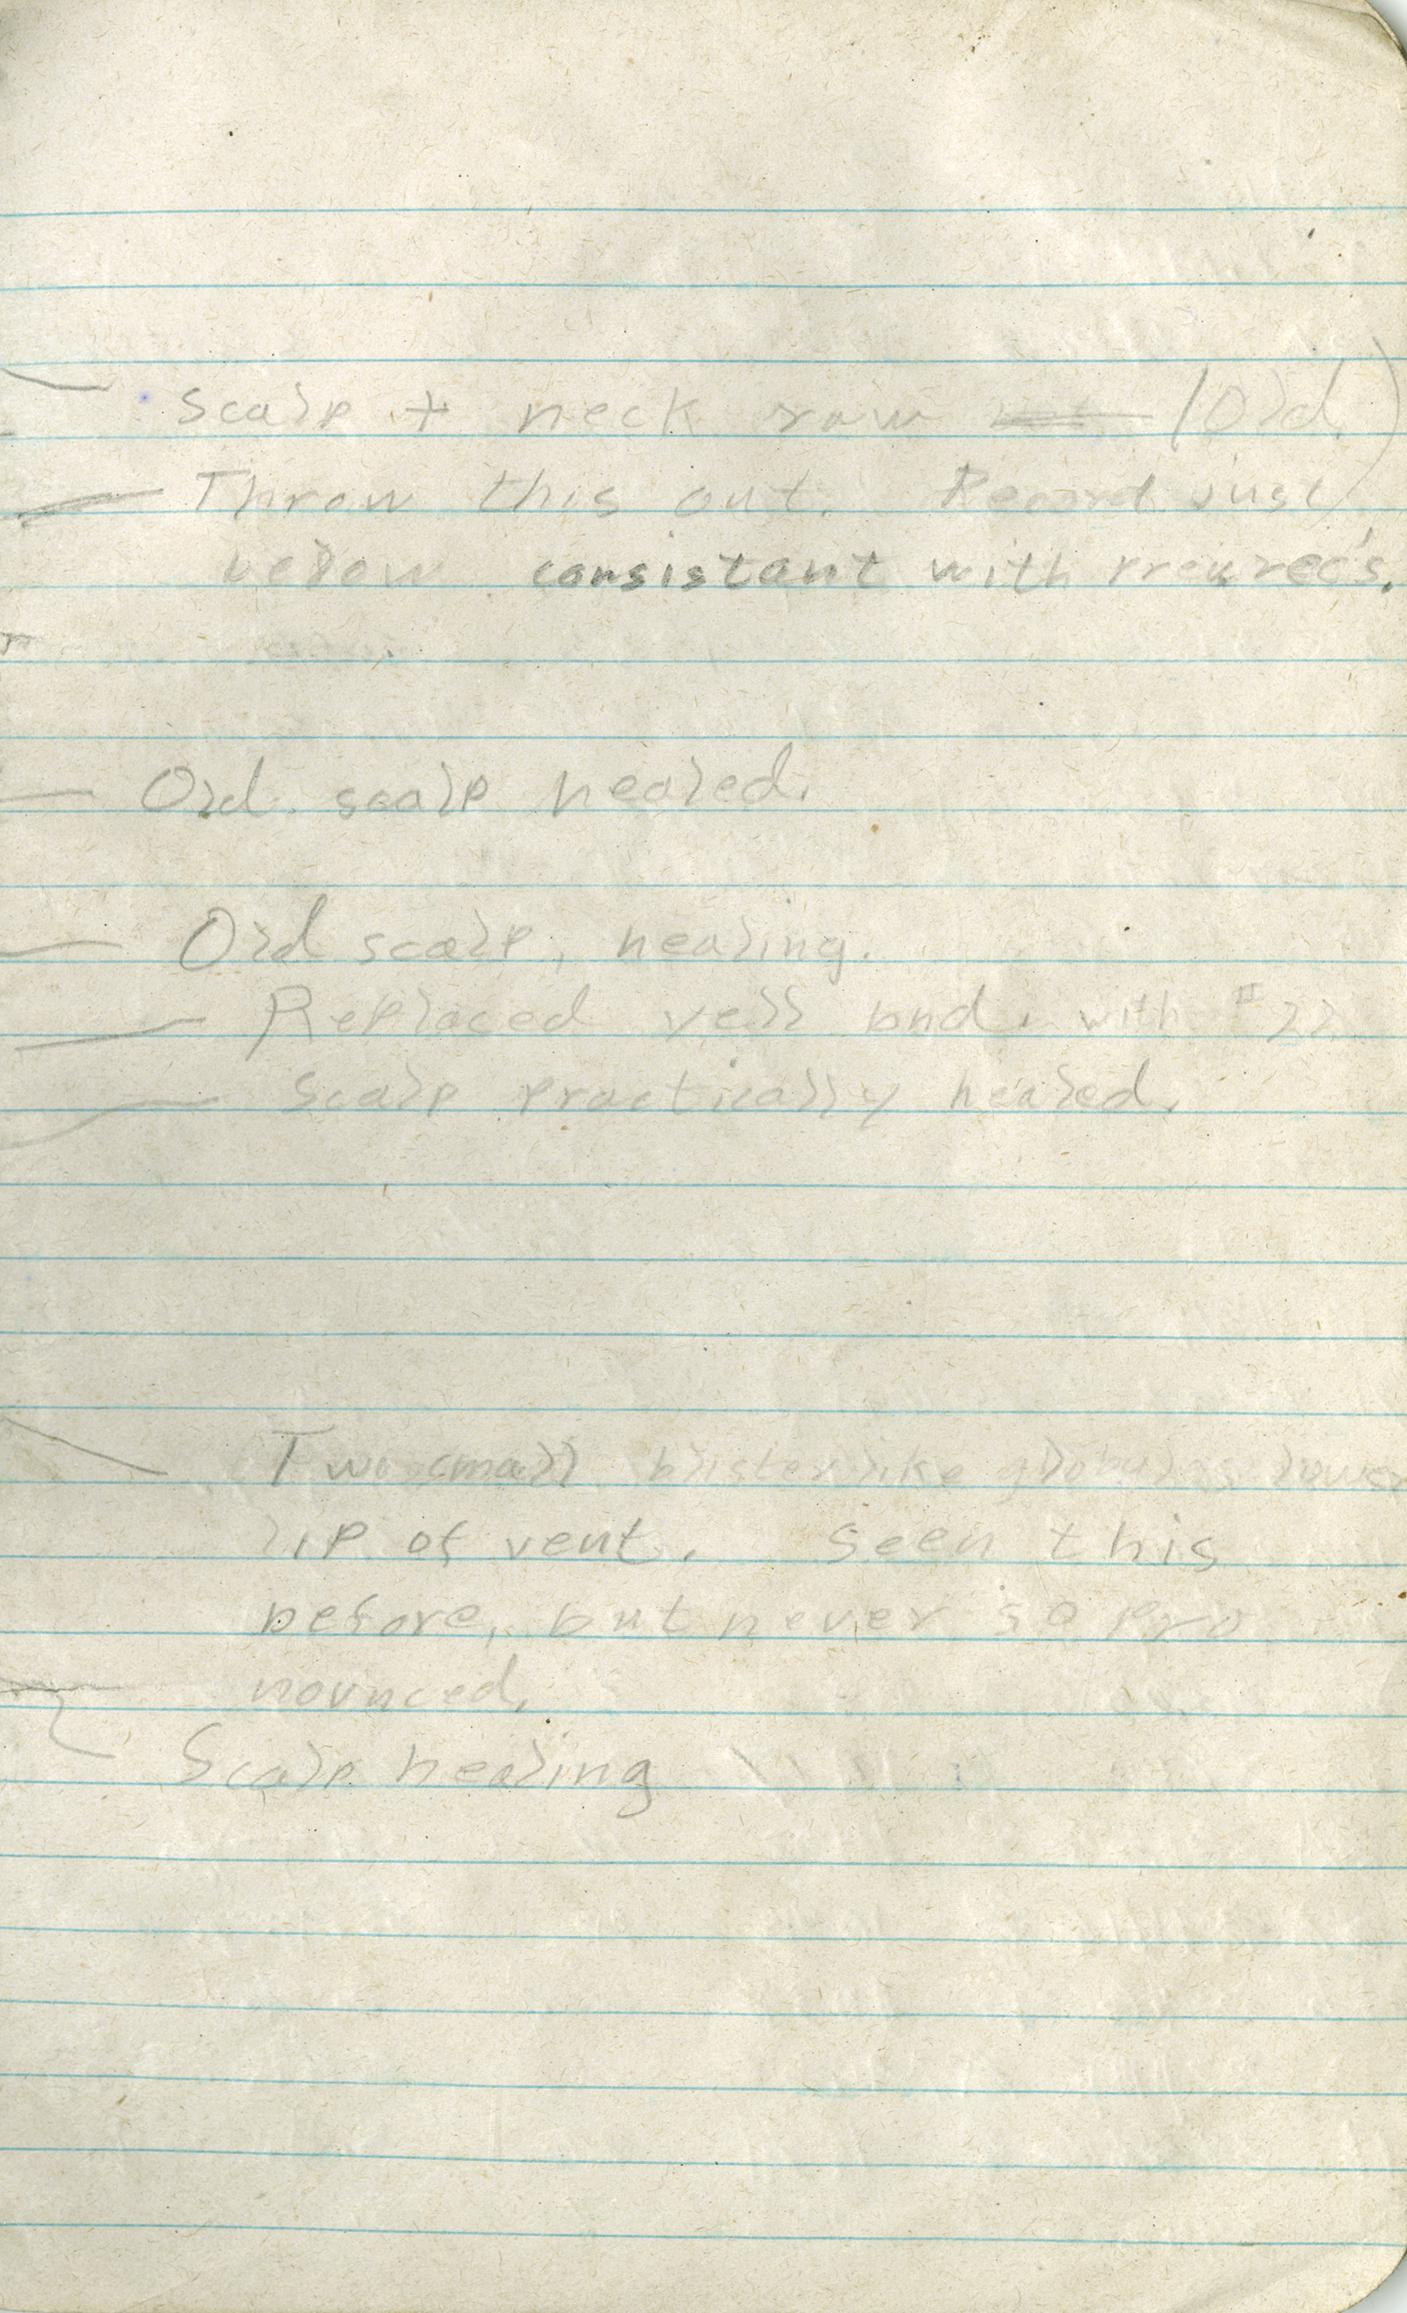 Scalp + neck raw (Old.)
Throw this out. Record just
below consistant with rec's.
Old scalp healed.
Old scalp, healing.
Replaced yell bnd. with #22
Scalp practically healed.
Two small blisterlike globules lower
lip of vent. Seen this
before, but never so pro
nounced.
Scalp healing